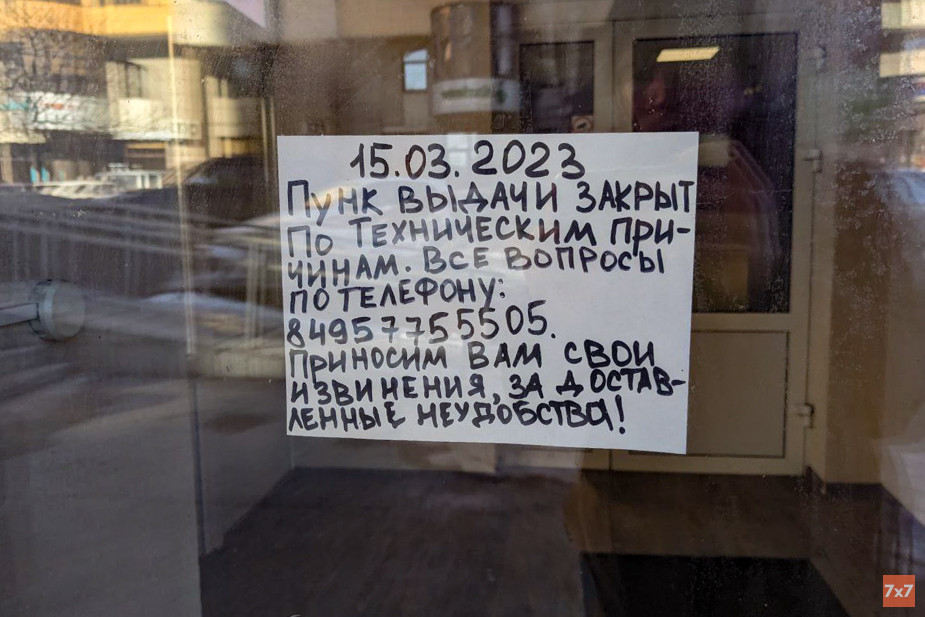 15.03.2023
Пунк выдачи закрыт
по техническим при-
чинам. Все вопросы
по телефону:
84957755505.
Приносим вам свои
извинения, за достав-
ленные неудобства!
7x7